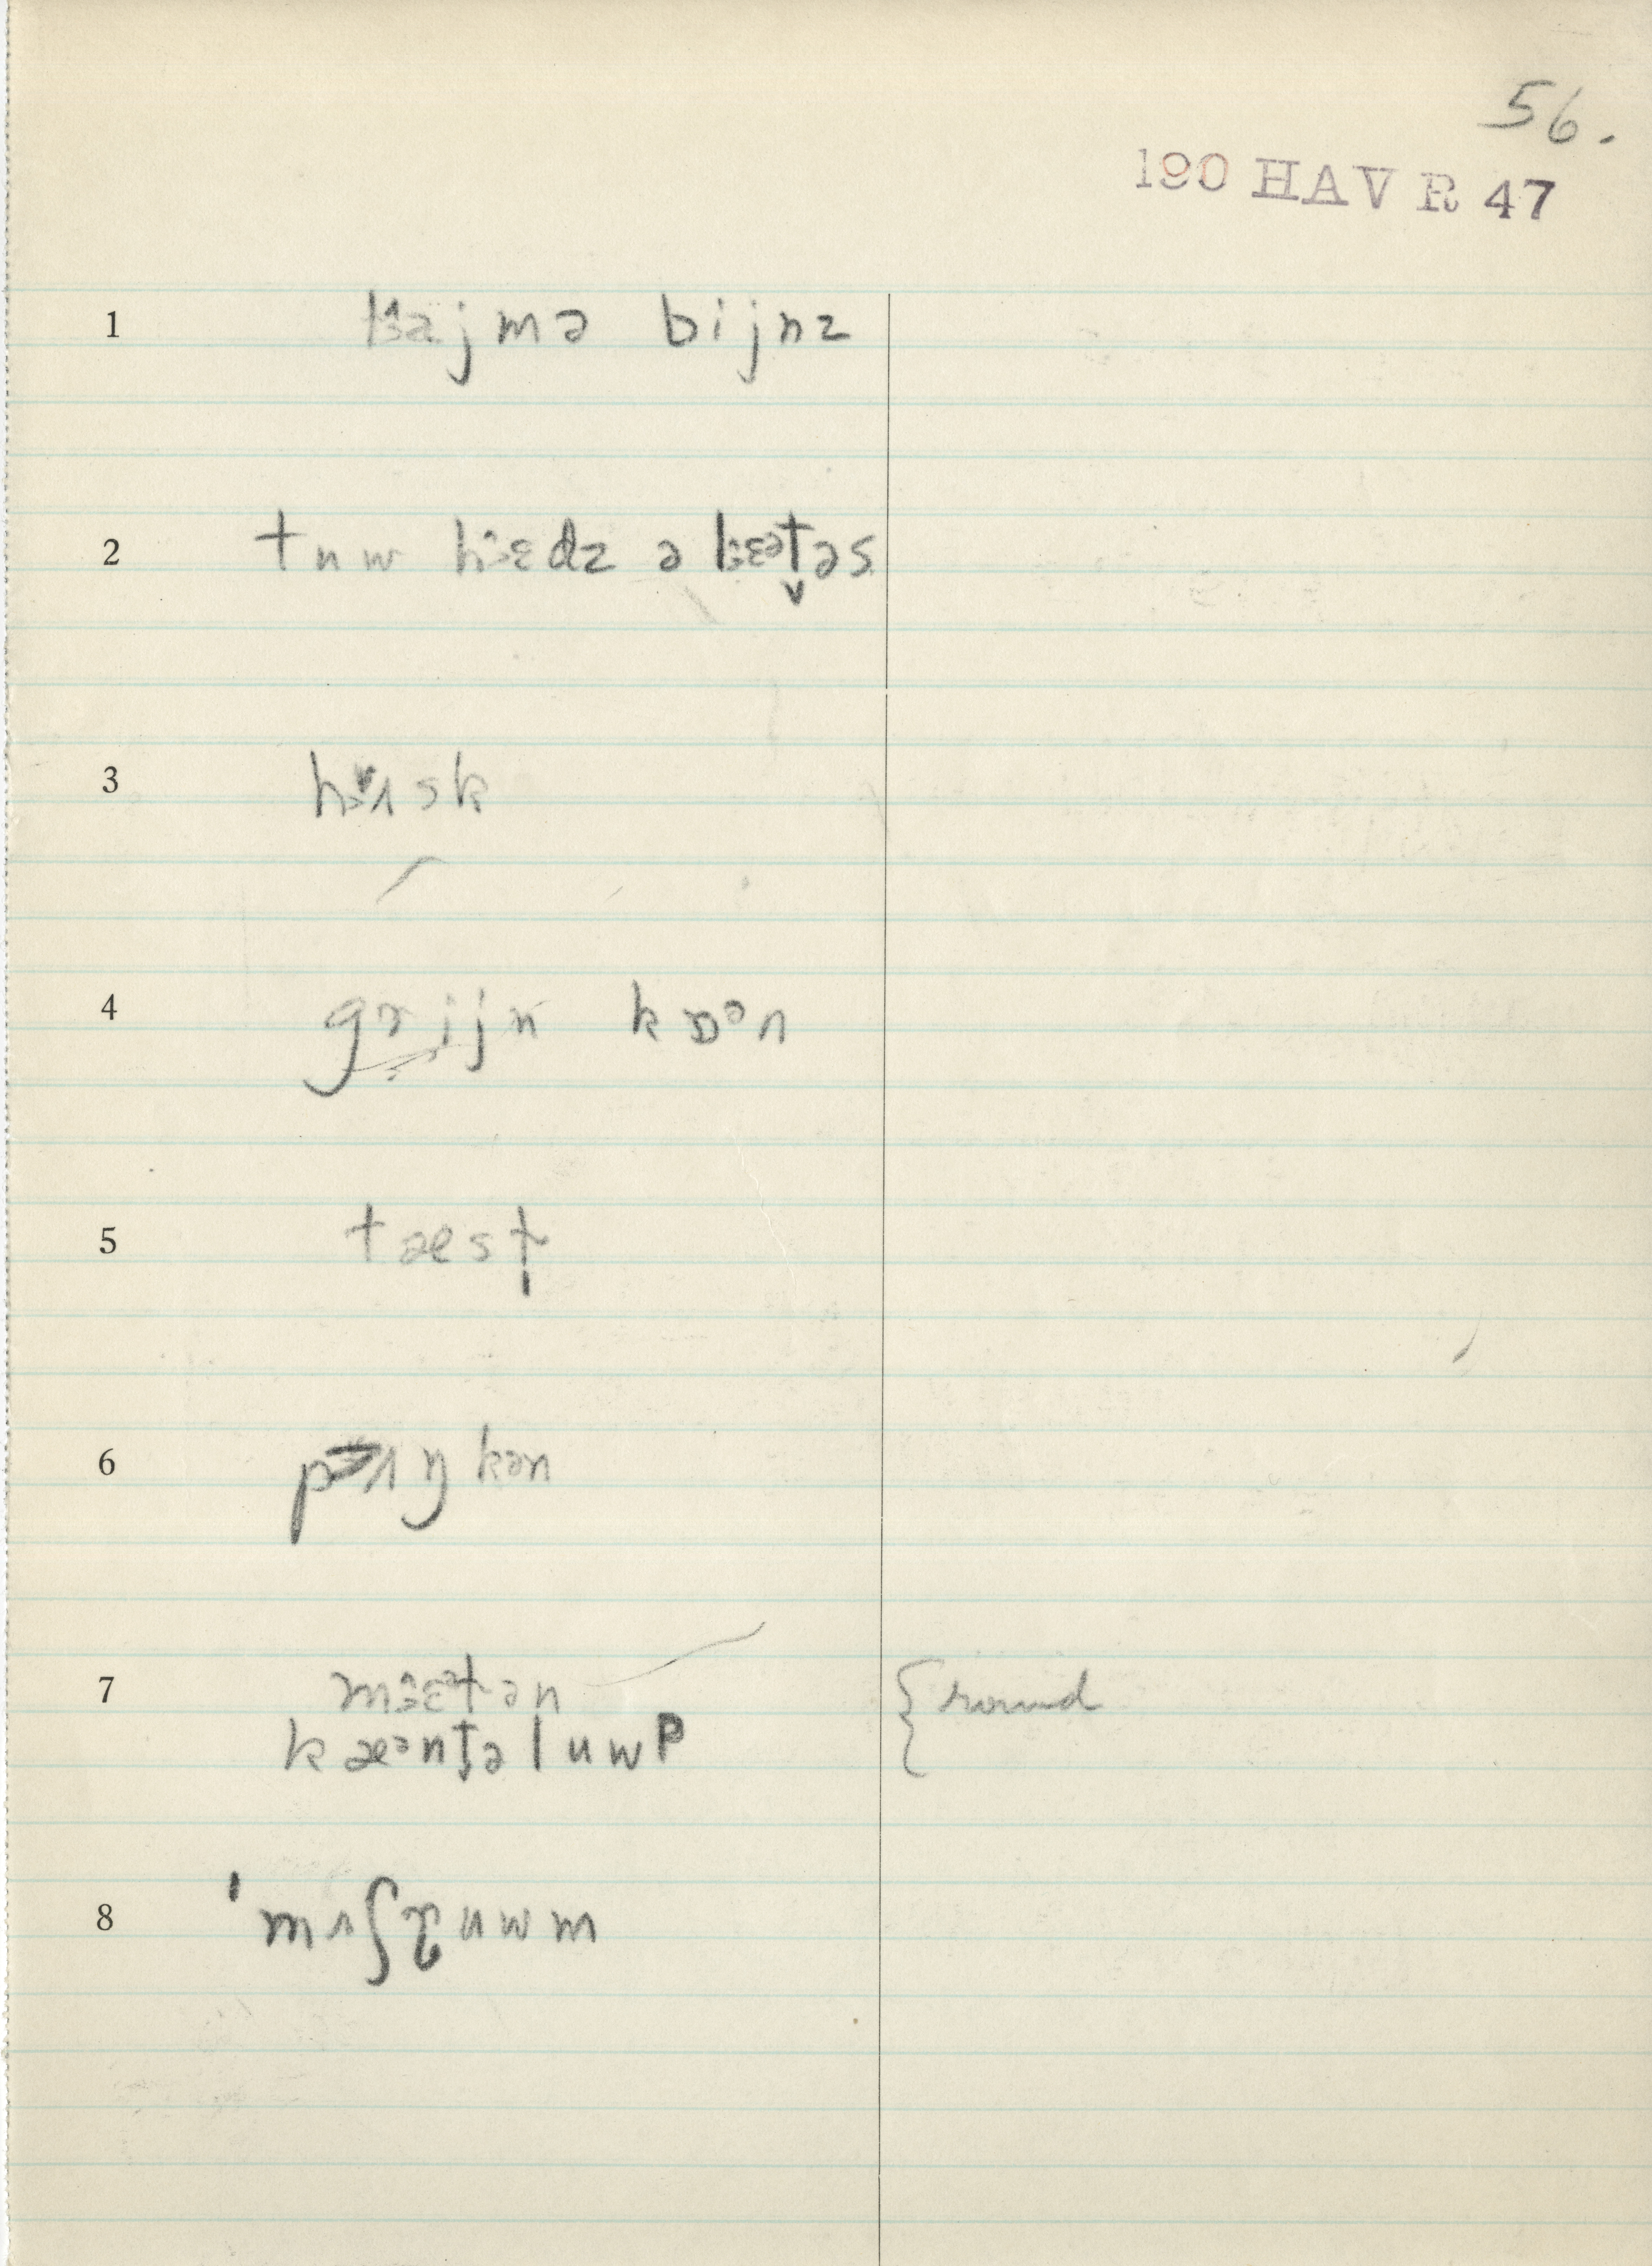 56.
190 HAVR 47
1 lajmə bijnz
2 tuw hɛdz ə lɛətəs
3 hʌsk
4 grijn kɒən
5 tæst
6 pʌŋkən
7 mɛətən { round
kæəntəluwp
8 'mʌʃruwm